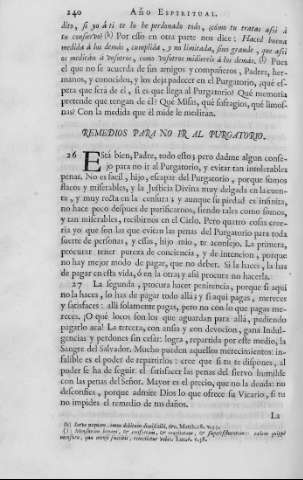 240 AÑO ESPIRITUAL.
dito, si yo à ti te lo he perdonado todo, còmo tu tratas assi à
tu conservo? (k) Por esso en otra parte nos dice: Haced buena
medida à los demàs, cumplida, y no limitada, sino grande, que assi
os medirán à vosotros, como vosotros midiereis à los demàs. (l) Pues
el que no se acuerda de sus amigos y compañeros, Padres, her-
manos, y conocidos, y los dexa padecer en el Purgatorio, ¿què es-
pera que serà de èl, si es que llega al Purgatorio? Què memoria
pretende que tengan de èl? Què Missas, què sufragios, què limos-
nas? Con la medida que èl mide le mediran.
REMEDIOS PARA NO IR AL PURGATORIO.
26 Està bien, Padre, todo esto; pero dadme algun conse-
jo para no ir al Purgatorio, y evitar tan intolerables
penas. No es facil, hijo, escapar del Purgatorio, porque somos
flacos y miserables, y la Justicia Divina muy delgada en la cuen-
ta, y muy recta en la censura; y aunque su piedad es infinita,
no hace poco despues de purificarnos, siendo tales como somos,
y tan miserables, recibirnos en el Cielo. Pero quatro cosas cree-
ria yo que son las que evitan las penas del Purgatorio para toda
suerte de personas, y essas, hijo mio, te aconsejo. La primera,
procurar tener pureza de conciencia, y de intencion, porque
no hay mejor modo de pagar, que no deber. Si la haces, la has
de pagar en esta vida, ò en la otra; y assi procura no hacerla.
27 La segunda, procura hacer penitencia, porque si aqui
no la haces, lo has de pagar todo allà; y si aqui pagas, mereces
y satisfaces: allà solamente pagas, pero no con lo que pagas me-
reces. ¡O què locos son los que aguardan para allà, pudiendo
pagarlo acà! La tercera, con ansia y con devocion, gana Indul-
gencias y perdones sin cessar: logra, repartida por este medio, la
Sangre del Salvador. Mucho pueden aquellos merecimientos: in-
falible es el poder de repartirlos: cree que si tu te dispones, al
poder se ha de seguir el satisfacer las penas del siervo humilde
con las penas del Señor. Mayor es el precio, que no la deuda: no
desconfies, porque admite Dios lo que ofrece su Vicario, si tu
no impides el remedio de tus daños.
La
(k) Serve nequam, omne debitum dimisi tibi, &c. Matth. 18.
(l) Mensuram bonam, & confertam, & coagitatam, & supereffluentem: eadem quippe
mensura, qua mensi fueritis, remetietur vobis. Lucæ 6. 38.